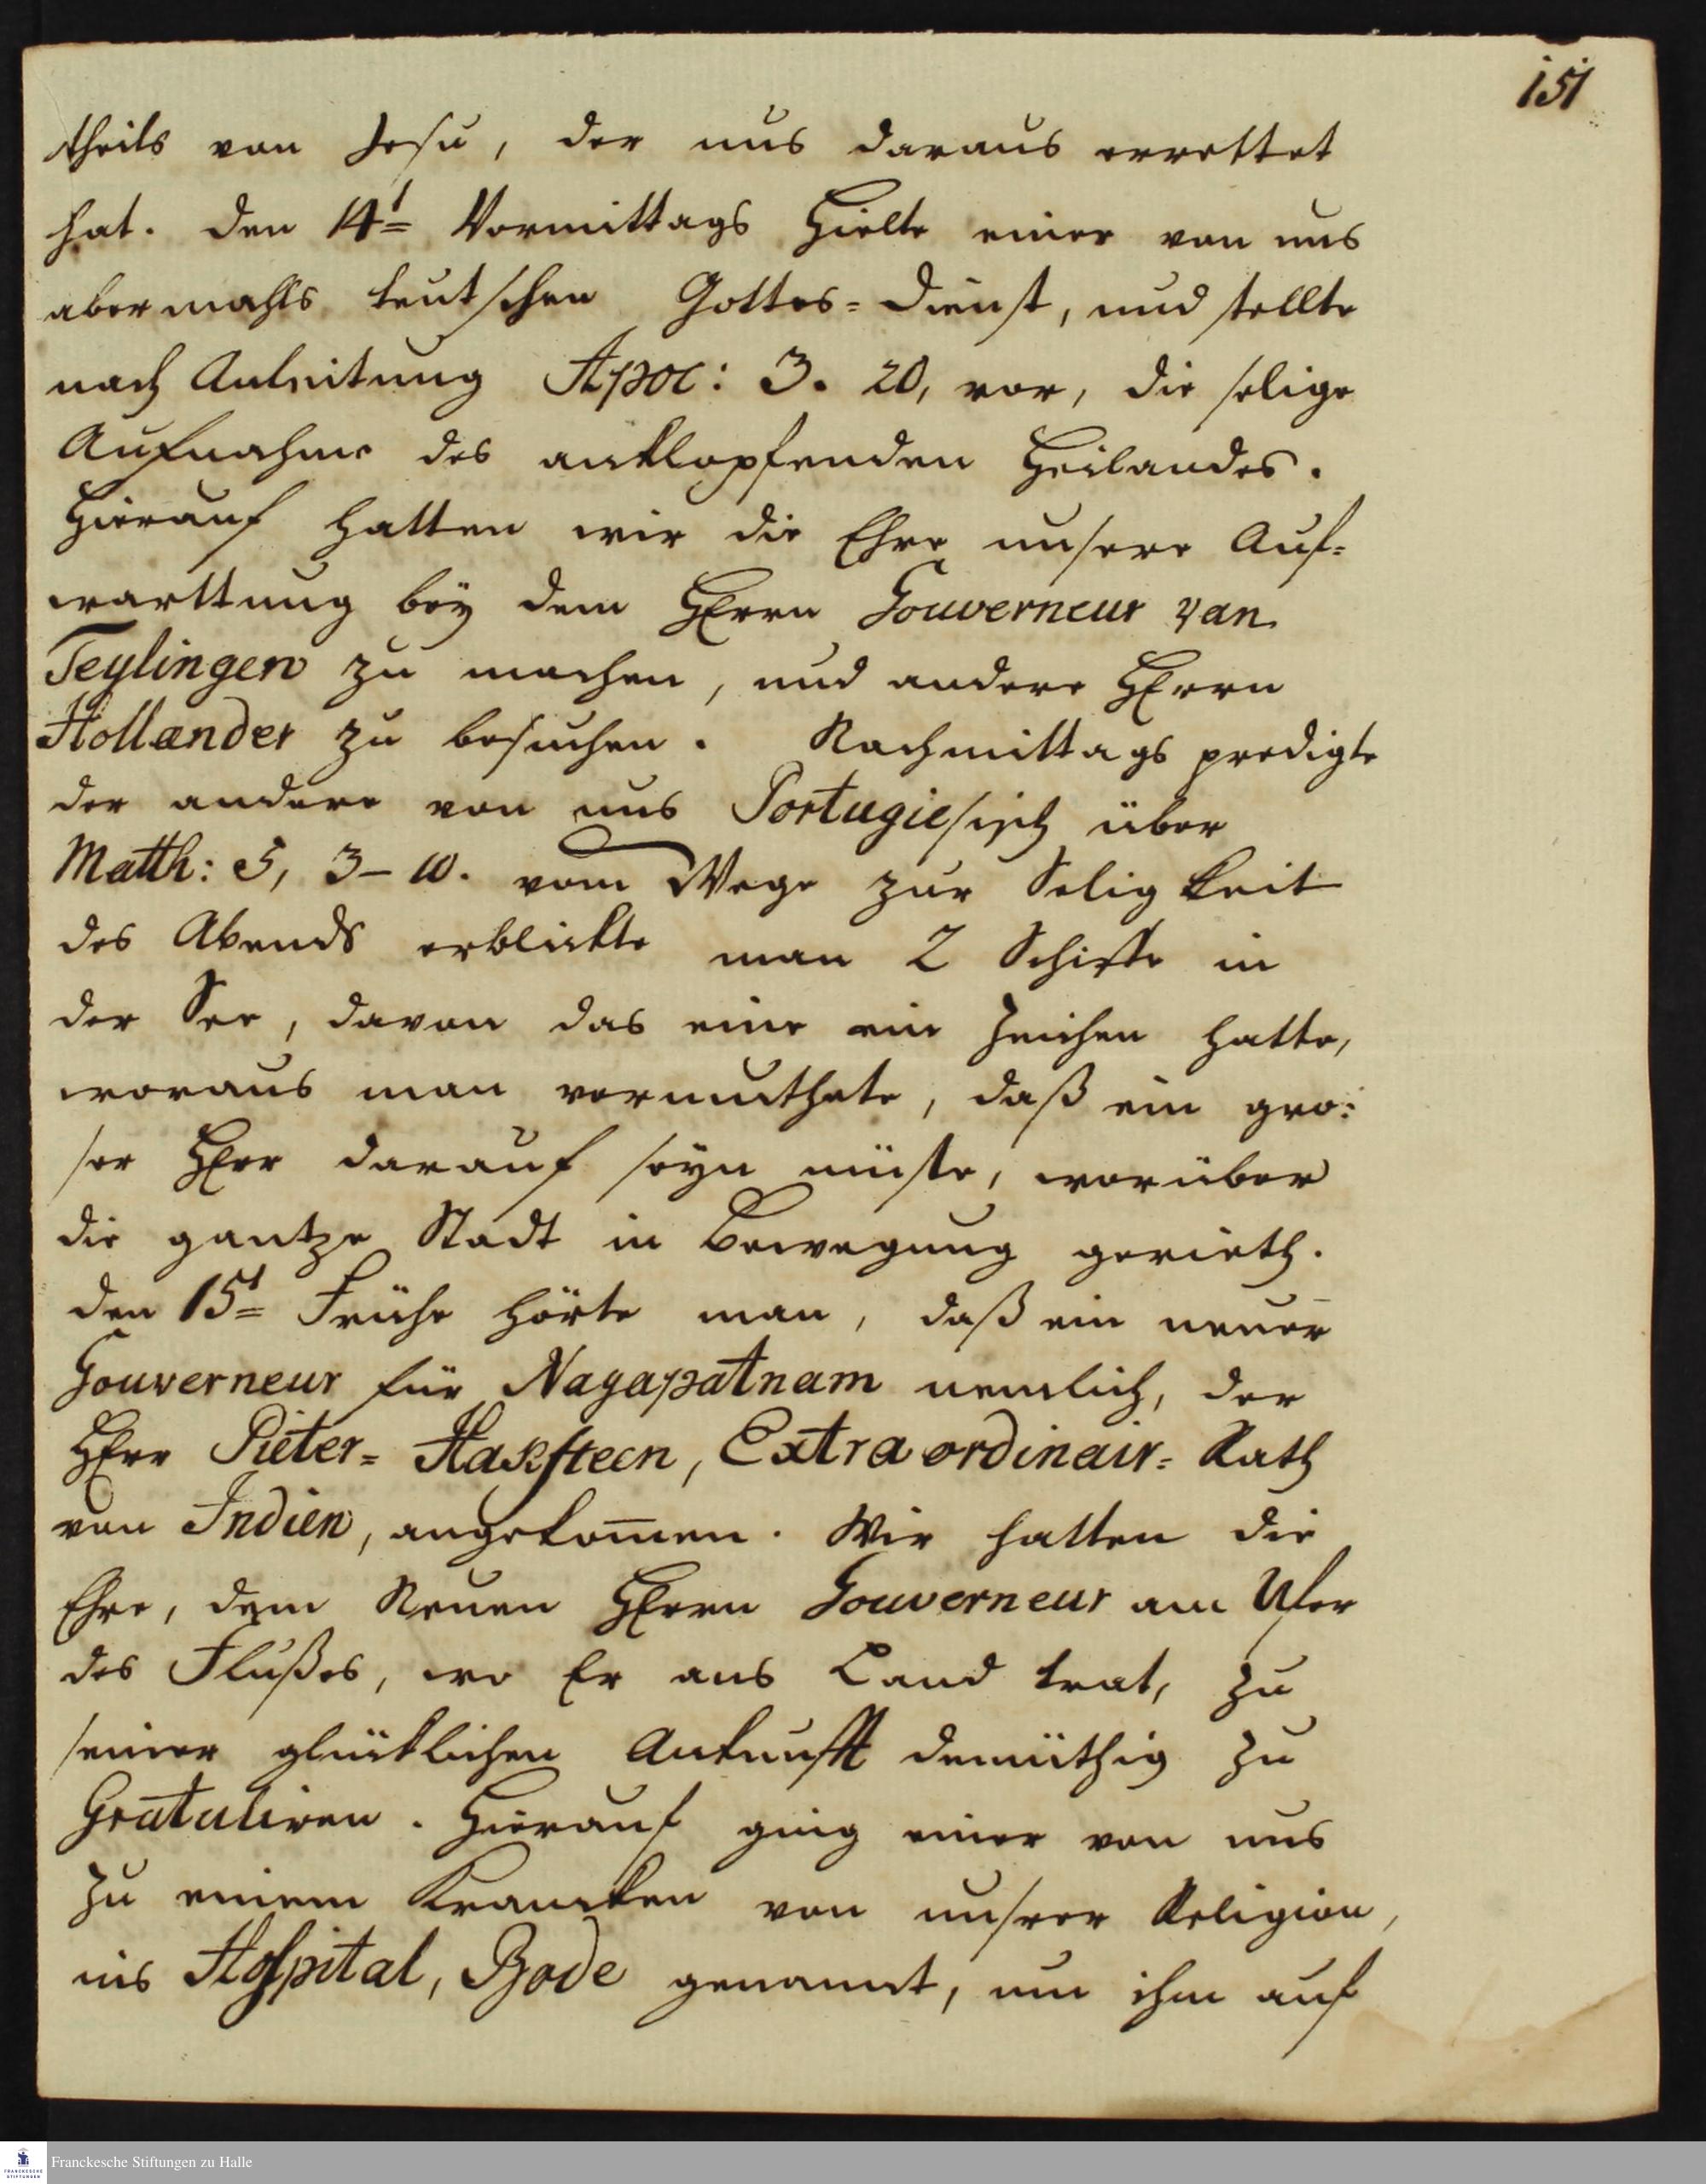 151
theils von Jesu, der uns daraus errettet
hat. den 14t= Vormittags hielte einer von uns
abermahls teutschen Gottes=dienst, und stellte
nach Anleitung Apoc: 3. 20, vor, die selige
Aufnahme des anklopfenden Heilandes.
Hierauf hatten wir die Ehre unsere Auf=
warttung bey dem HErrn Gouverneur van
Teylingen zu machen, und andere HErrn
Hollænder zu besuchen. Nachmittags predigte
der andere von uns Portugiesisch über
Matth: 5, 3-10. vom Wege zur Seligkeit
des Abends erblickte man 2 Schiffe in
der See, davon das eine ein Zeichen hatte,
woraus man vermuthete, daß ein gro=
ser HErr darauf seyn müste, worüber
die gantze Stadt in Bewegung gerieth.
den 15t= Frühe hörte man, daß ein neuer
Gouverneur für Nagapatnam nemlich, der
HErr Pieter=Haksteen, Extraordinair=Rath
von Indien, angekom̄en. Wir hatten die
Ehre, dem Neuen HErrn Gouverneur am Ufer
des Flußes, wo Er ans Land trat, zu
seiner glücklichen Ankunfft demüthig zu
Gratuliren. Hierauf ging einer von uns
zu einem Krancken von unsrer Religion,
ins Hospital, Bode genannt, um ihm auf
Franckesche Stiftungen zu Halle
FRANCKESCHE
STIFTUNGEN